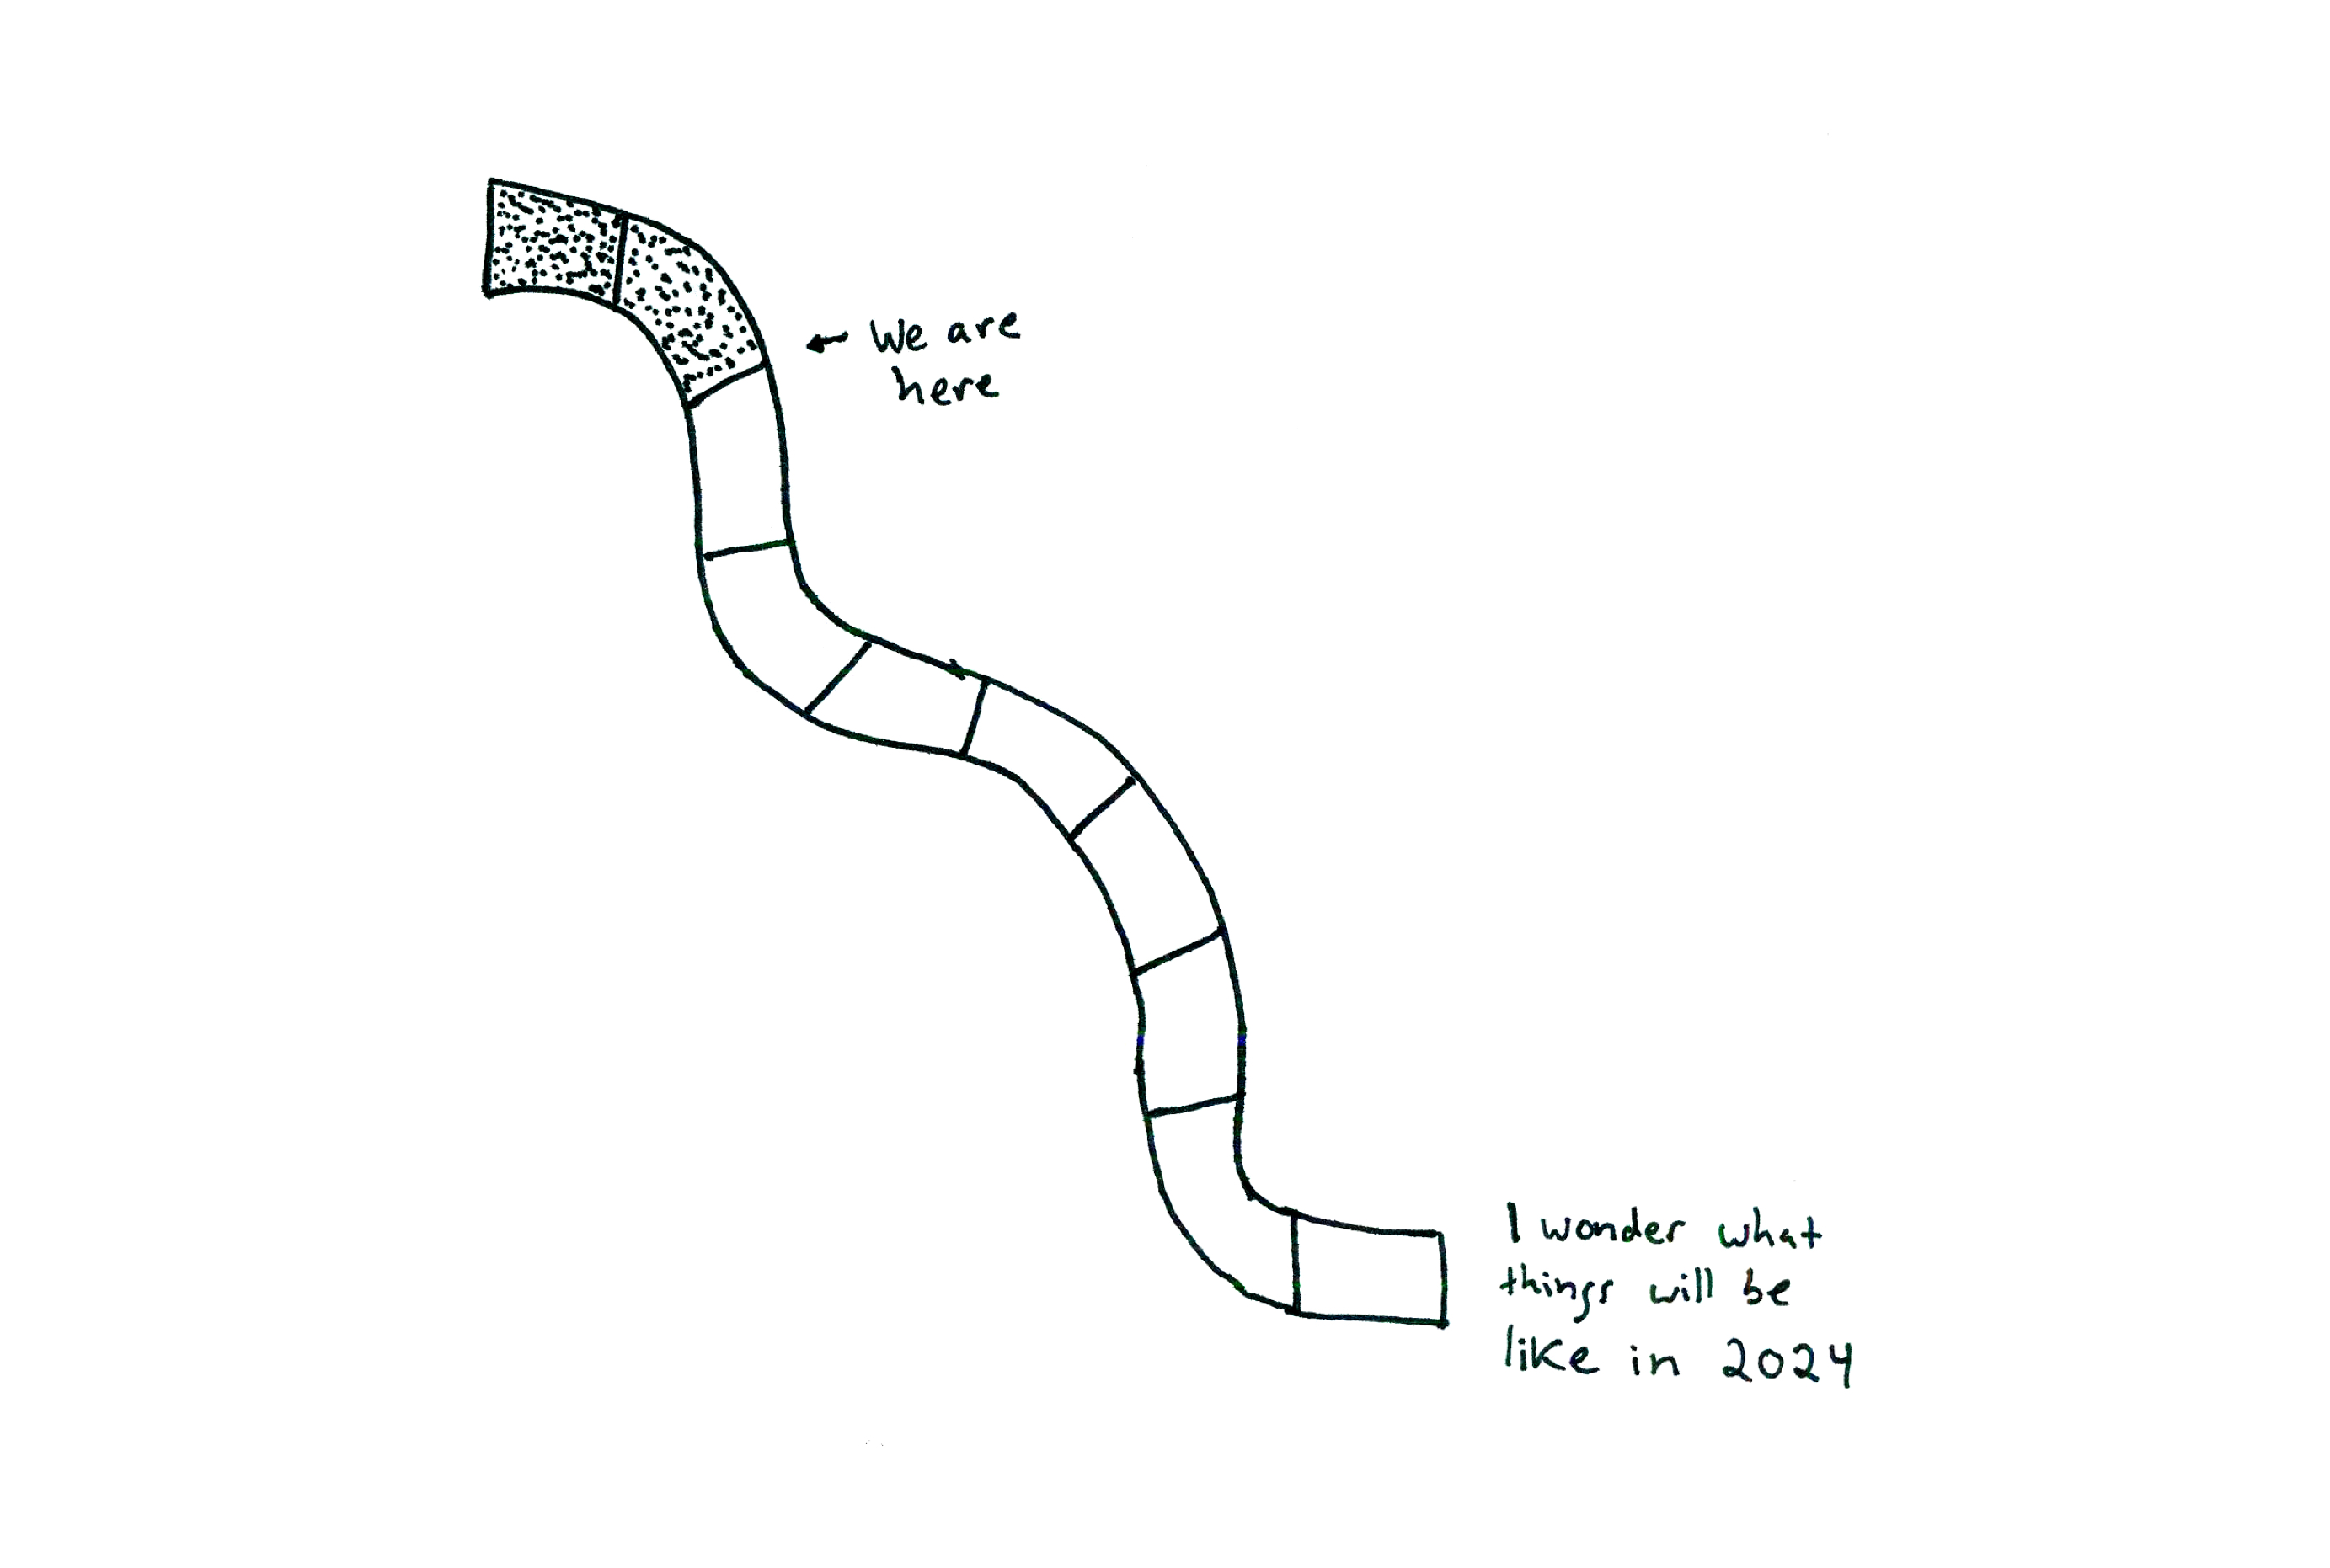 We are
here
I wonder what
things will be
like in 2024